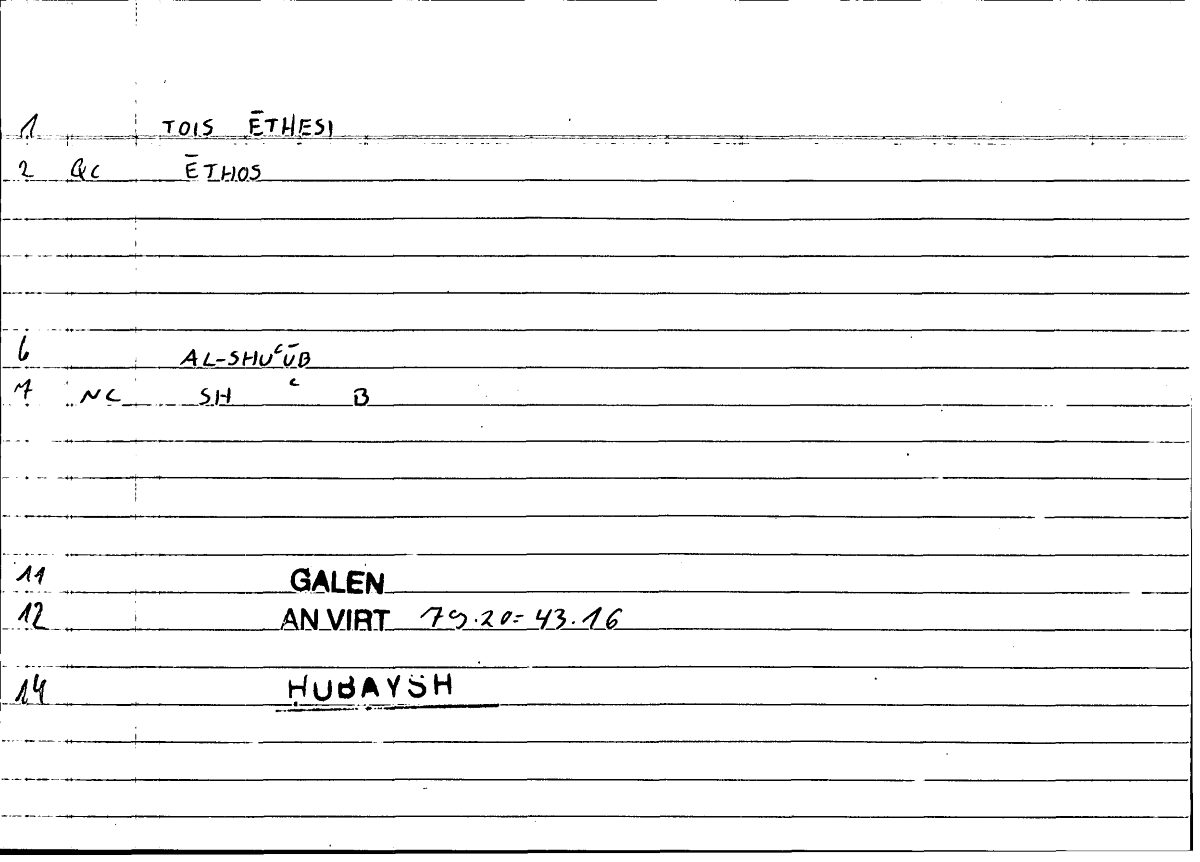 1 TOIS ĒTHESI
2 QC ĒTHOS
6 AL-SHUʿŪB
7 NC SH ʿ B
11 GALEN
12 AN VIRT 79.20=43.16
14 ḤUBAYSH